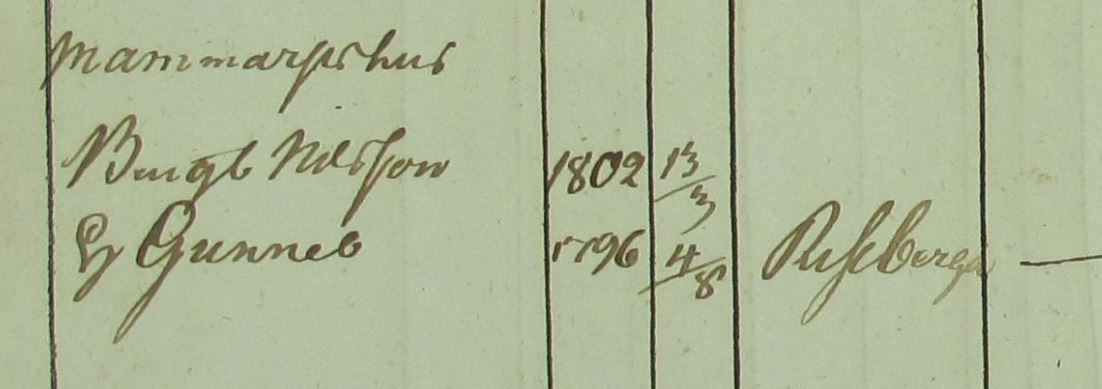 Mammarpshus
Bengt Nilsson 1802 13/3
Gunnel 1796 4/8 Riseberga —